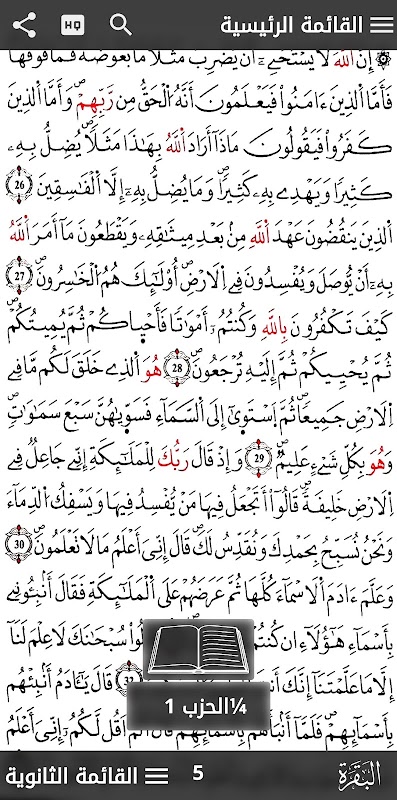 القائمة الرئيسية
HQ
إِنَّ اَللَّهَ لَا يَسْتَحْيِۦٓ أَنْ يَّضْرِبَ مَثَلاٗ مَّا بَعُوضَةٗ فَمَا فَوْقَهَا
فَأَمَّا اَلذِينَ ءَامَنُواْ فَيَعْلَمُونَ أَنَّهُ اُلْحَقُّ مِن رَّبِّهِمْ وَأَمَّا اَلذِينَ
كَفَرُواْ فَيَقُولُونَ مَاذَا أَرَادَ اَللَّهُ بِهَٰذَا مَثَلاٗ يُضِلُّ بِهِۦ
كَثِيراٗ وَيَهْدِے بِهِۦ كَثِيراٗ وَمَا يُضِلُّ بِهِۦٓ إِلَّا اَلْفَٰسِقِينَ 26
اَلذِينَ يَنقُضُونَ عَهْدَ اَللَّهِ مِنۢ بَعْدِ مِيثَٰقِهِۦ وَيَقْطَعُونَ مَا أَمَرَ اَللَّهُ
بِهِۦٓ أَنْ يُّوصَلَ وَيُفْسِدُونَ فِے اِلَارْضِ أُوْلَٰٓئِكَ هُمُ اُلْخَٰسِرُونَ 27
كَيْفَ تَكْفُرُونَ بِاللَّهِ وَكُنتُمْ أَمْوَٰتاٗ فَأَحْيَٰكُمْ ثُمَّ يُمِيتُكُمْ
ثُمَّ يُحْيِيكُمْ ثُمَّ إِلَيْهِ تُرْجَعُونَ 28 هُوَ اَلذِے خَلَقَ لَكُم مَّا فِے
اِلَارْضِ جَمِيعاٗ ثُمَّ اَسْتَوَىٰٓ إِلَى اَلسَّمَآءِ فَسَوَّىٰهُنَّ سَبْعَ سَمَٰوَٰتٖ
وَهُوَ بِكُلِّ شَےْءٍ عَلِيمٌ 29 وَإِذْ قَالَ رَبُّكَ لِلْمَلَٰٓئِكَةِ إِنِّے جَاعِلٞ فِے
اِلَارْضِ خَلِيفَةٗ قَالُواْ أَتَجْعَلُ فِيهَا مَنْ يُّفْسِدُ فِيهَا وَيَسْفِكُ اُلدِّمَآءَ
وَنَحْنُ نُسَبِّحُ بِحَمْدِكَ وَنُقَدِّسُ لَكَ قَالَ إِنِّيَ أَعْلَمُ مَا لَا تَعْلَمُونَ 30
وَعَلَّمَ ءَادَمَ اَلَاسْمَآءَ كُلَّهَا ثُمَّ عَرَضَهُمْ عَلَى اَلْمَلَٰٓئِكَةِ فَقَالَ أَنۢبِـُٔونِے
بِأَسْمَآءِ هَٰٓؤُلَآءِ ان كُنتُمْ سُبْحَٰنَكَ لَا عِلْمَ لَنَا
إِلَّا مَا عَلَّمْتَنَا إِنَّكَ قَالَ يَٰٓـَٔادَمُ أَنۢبِئْهُم
بِأَسْمَآئِهِمْ فَلَمَّا أَنۢبَأَهُم بِأَسْمَآئِهِمْ قَالَ أَلَمَ اَقُل لَّكُمُ إِنِّيَ أَعْلَمُ
¼الحزب 1
البقرة
5
القائمة الثانوية